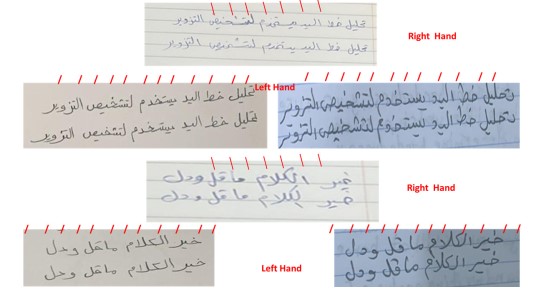 تحليل خط اليد يستخدم لتشخيص التزوير
تحليل خط اليد يستخدم لتشخيص التزوير
Right Hand
Left Hand
تحليل خط اليد يستخدم لتشخيص التزوير
تحليل خط اليد يستخدم لتشخيص التزوير
تحليل خط اليد يستخدم لتشخيص التزوير
تحليل خط اليد يستخدم لتشخيص التزوير
خير الكلام ما قل ودل
خير الكلام ما قل ودل
Right Hand
خير الكلام ما قل ودل
خير الكلام ما قل ودل
Left Hand
خير الكلام ما قل ودل
خير الكلام ما قل ودل